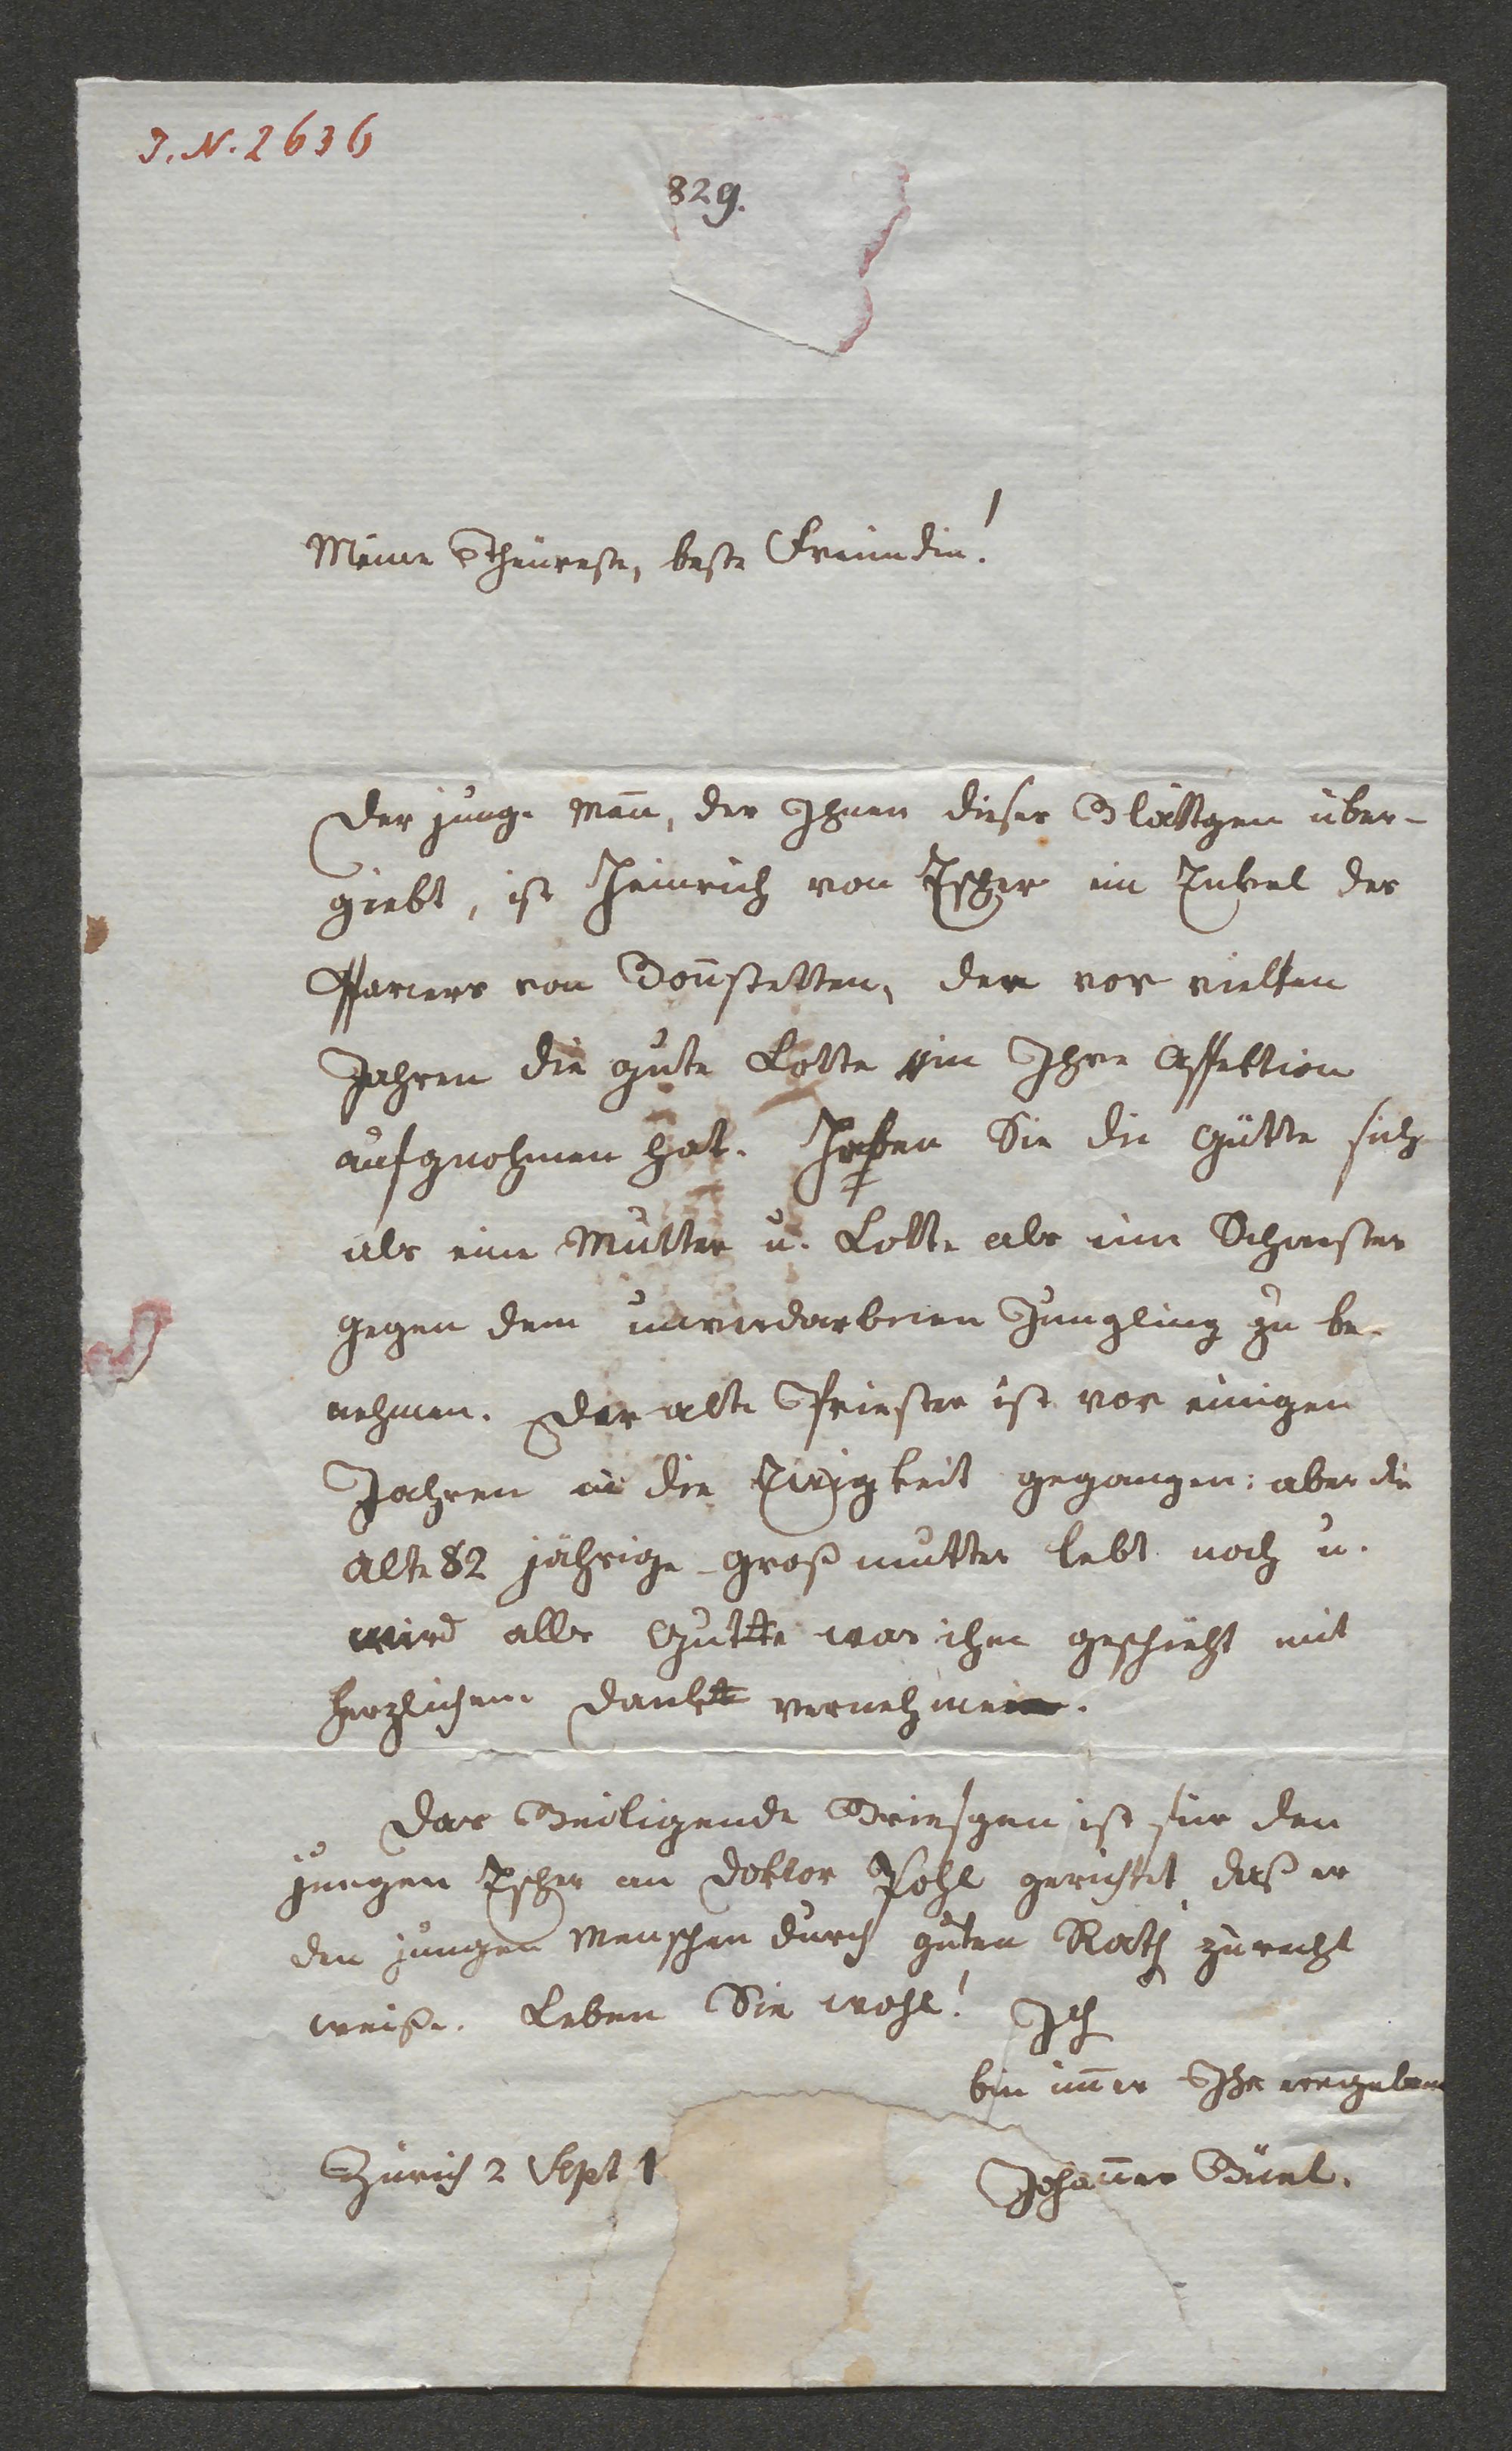 J. N. 2636
829.
Meine Theureste, beste Freundin!
Der junge Man̄, der Ihnen dieses Blättgen über-
giebt, ist Heinrich von Escher ein Enkel des
Pfarrers von Don̄stetten, der vor vielen
Jahren die gute Lotte in Ihre Affektion
aufgnohmen hat. Haben Sie die Gütte sich
als eine Mutter u. Lotte als eine Schwester
gegen dem unverdorbenen Jüngling zu be-
nehmen. Der alte Priester ist vor einigen
Jahren in die Ewigkeit gegangen: aber die
alte 82 jährige Großmutter lebt noch u.
wird alles Gutte was ihm geschieht mit
herzlichem Dank vernehmen.
Das Beiligende Briefgen ist für den
jungen Escher an Doktor Pohl gerichtet, daß er
den jungen Menschen durch guten Rath zurecht
weise. Leben Sie wohl! Ich
bin im̄er Ihr ergebene
Zürich 2 Sept 1
Johan̄es Büel.